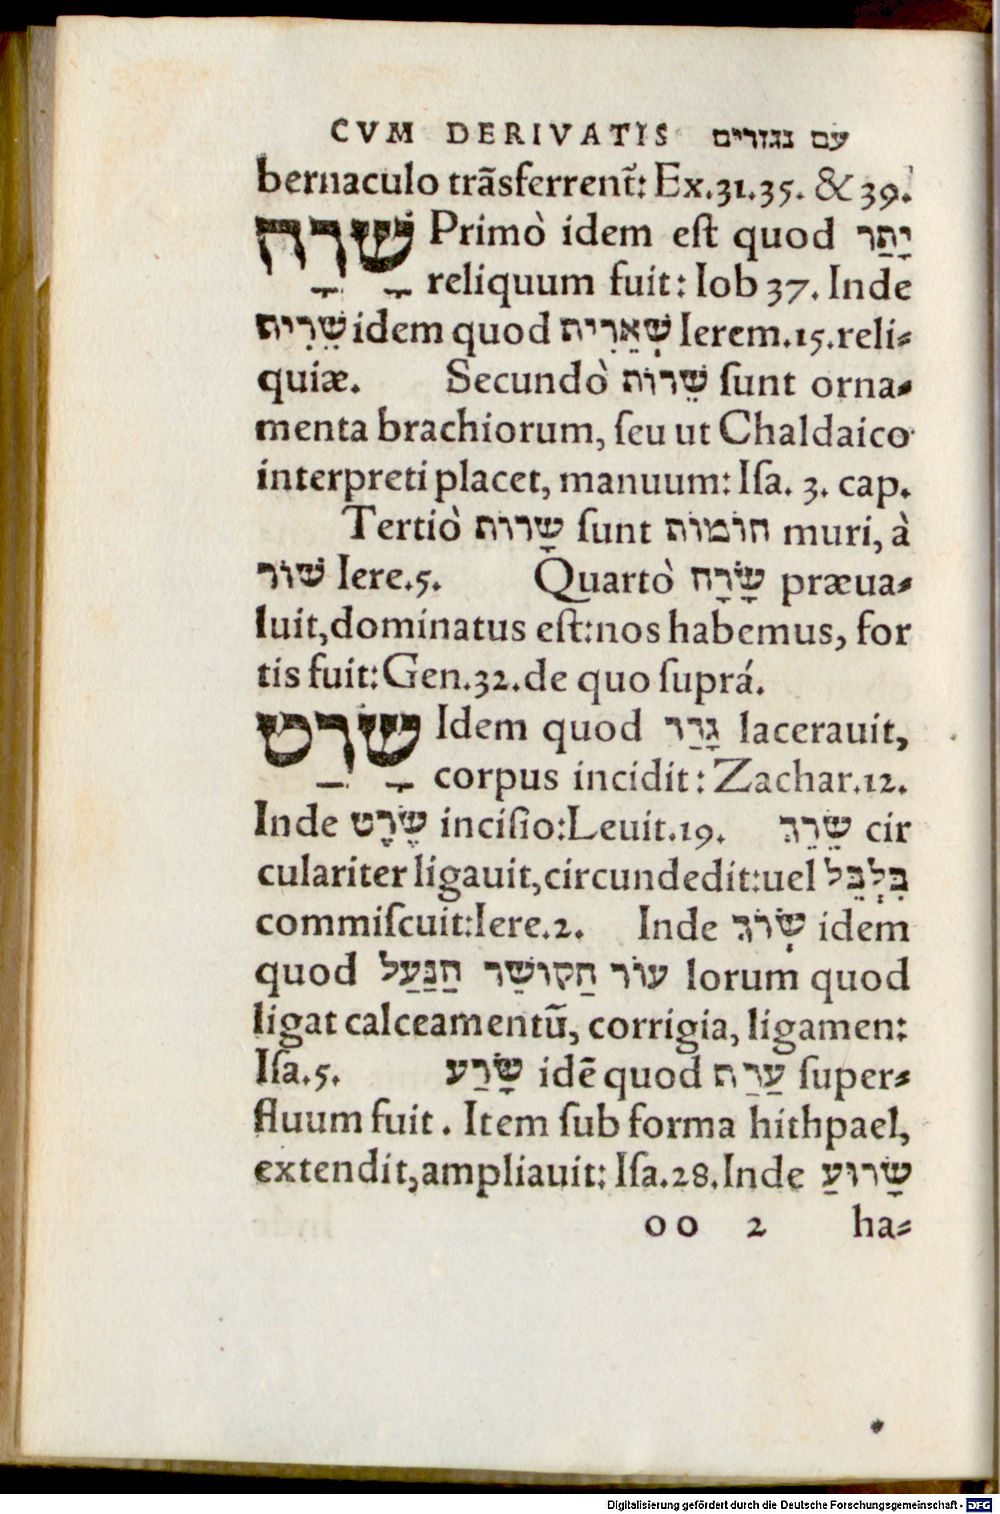 CVM DERIVATIS עם נגזרים
bernaculo trãsferrent᷑: Ex.31.35. & 39.
שָׁרָה Primò idem eſt quod יָתַר
reliquum fuit: Iob 37. Inde
שֵׁרִית idem quod שְׁאֵרִית Ierem.15.reli⸗
quiæ. Secundò שֵׁרוֹת ſunt orna⸗
menta brachiorum, ſeu ut Chaldaico
interpreti placet, manuum: Iſa. 3. cap.
Tertiò שָׁרוֹת ſunt חוֹמוֹת muri, à
שׁוּר Iere.5. Quartò שָׂרָה præua⸗
luit,dominatus eſt:nos habemus, for
tis fuit:Gen.32.de quo ſuprá.
שָׂרַט Idem quod גָּרַר lacerauit,
corpus incidit: Zachar.12.
Inde שֶׂרֶט inciſio:Leuit.19. שֵׂרֵךְ cir
culariter ligauit,circundedit:uel בִּלְבֵּל
commiſcuit:Iere.2. Inde שְׂרוֹךְ idem
quod עוֹר הַקּוֹשֵׁר הַנַּעַל lorum quod
ligat calceamentũ, corrigia, ligamen:
Iſa.5. שָׂרַע idẽ quod עָדַף ſuper⸗
fluum fuit. Item ſub forma hithpael,
extendit,ampliauit: Iſa.28.Inde שָׂרוּעַ
oo 2 ha⸗
Digitalisierung gefördert durch die Deutsche Forschungsgemeinschaft - DFG